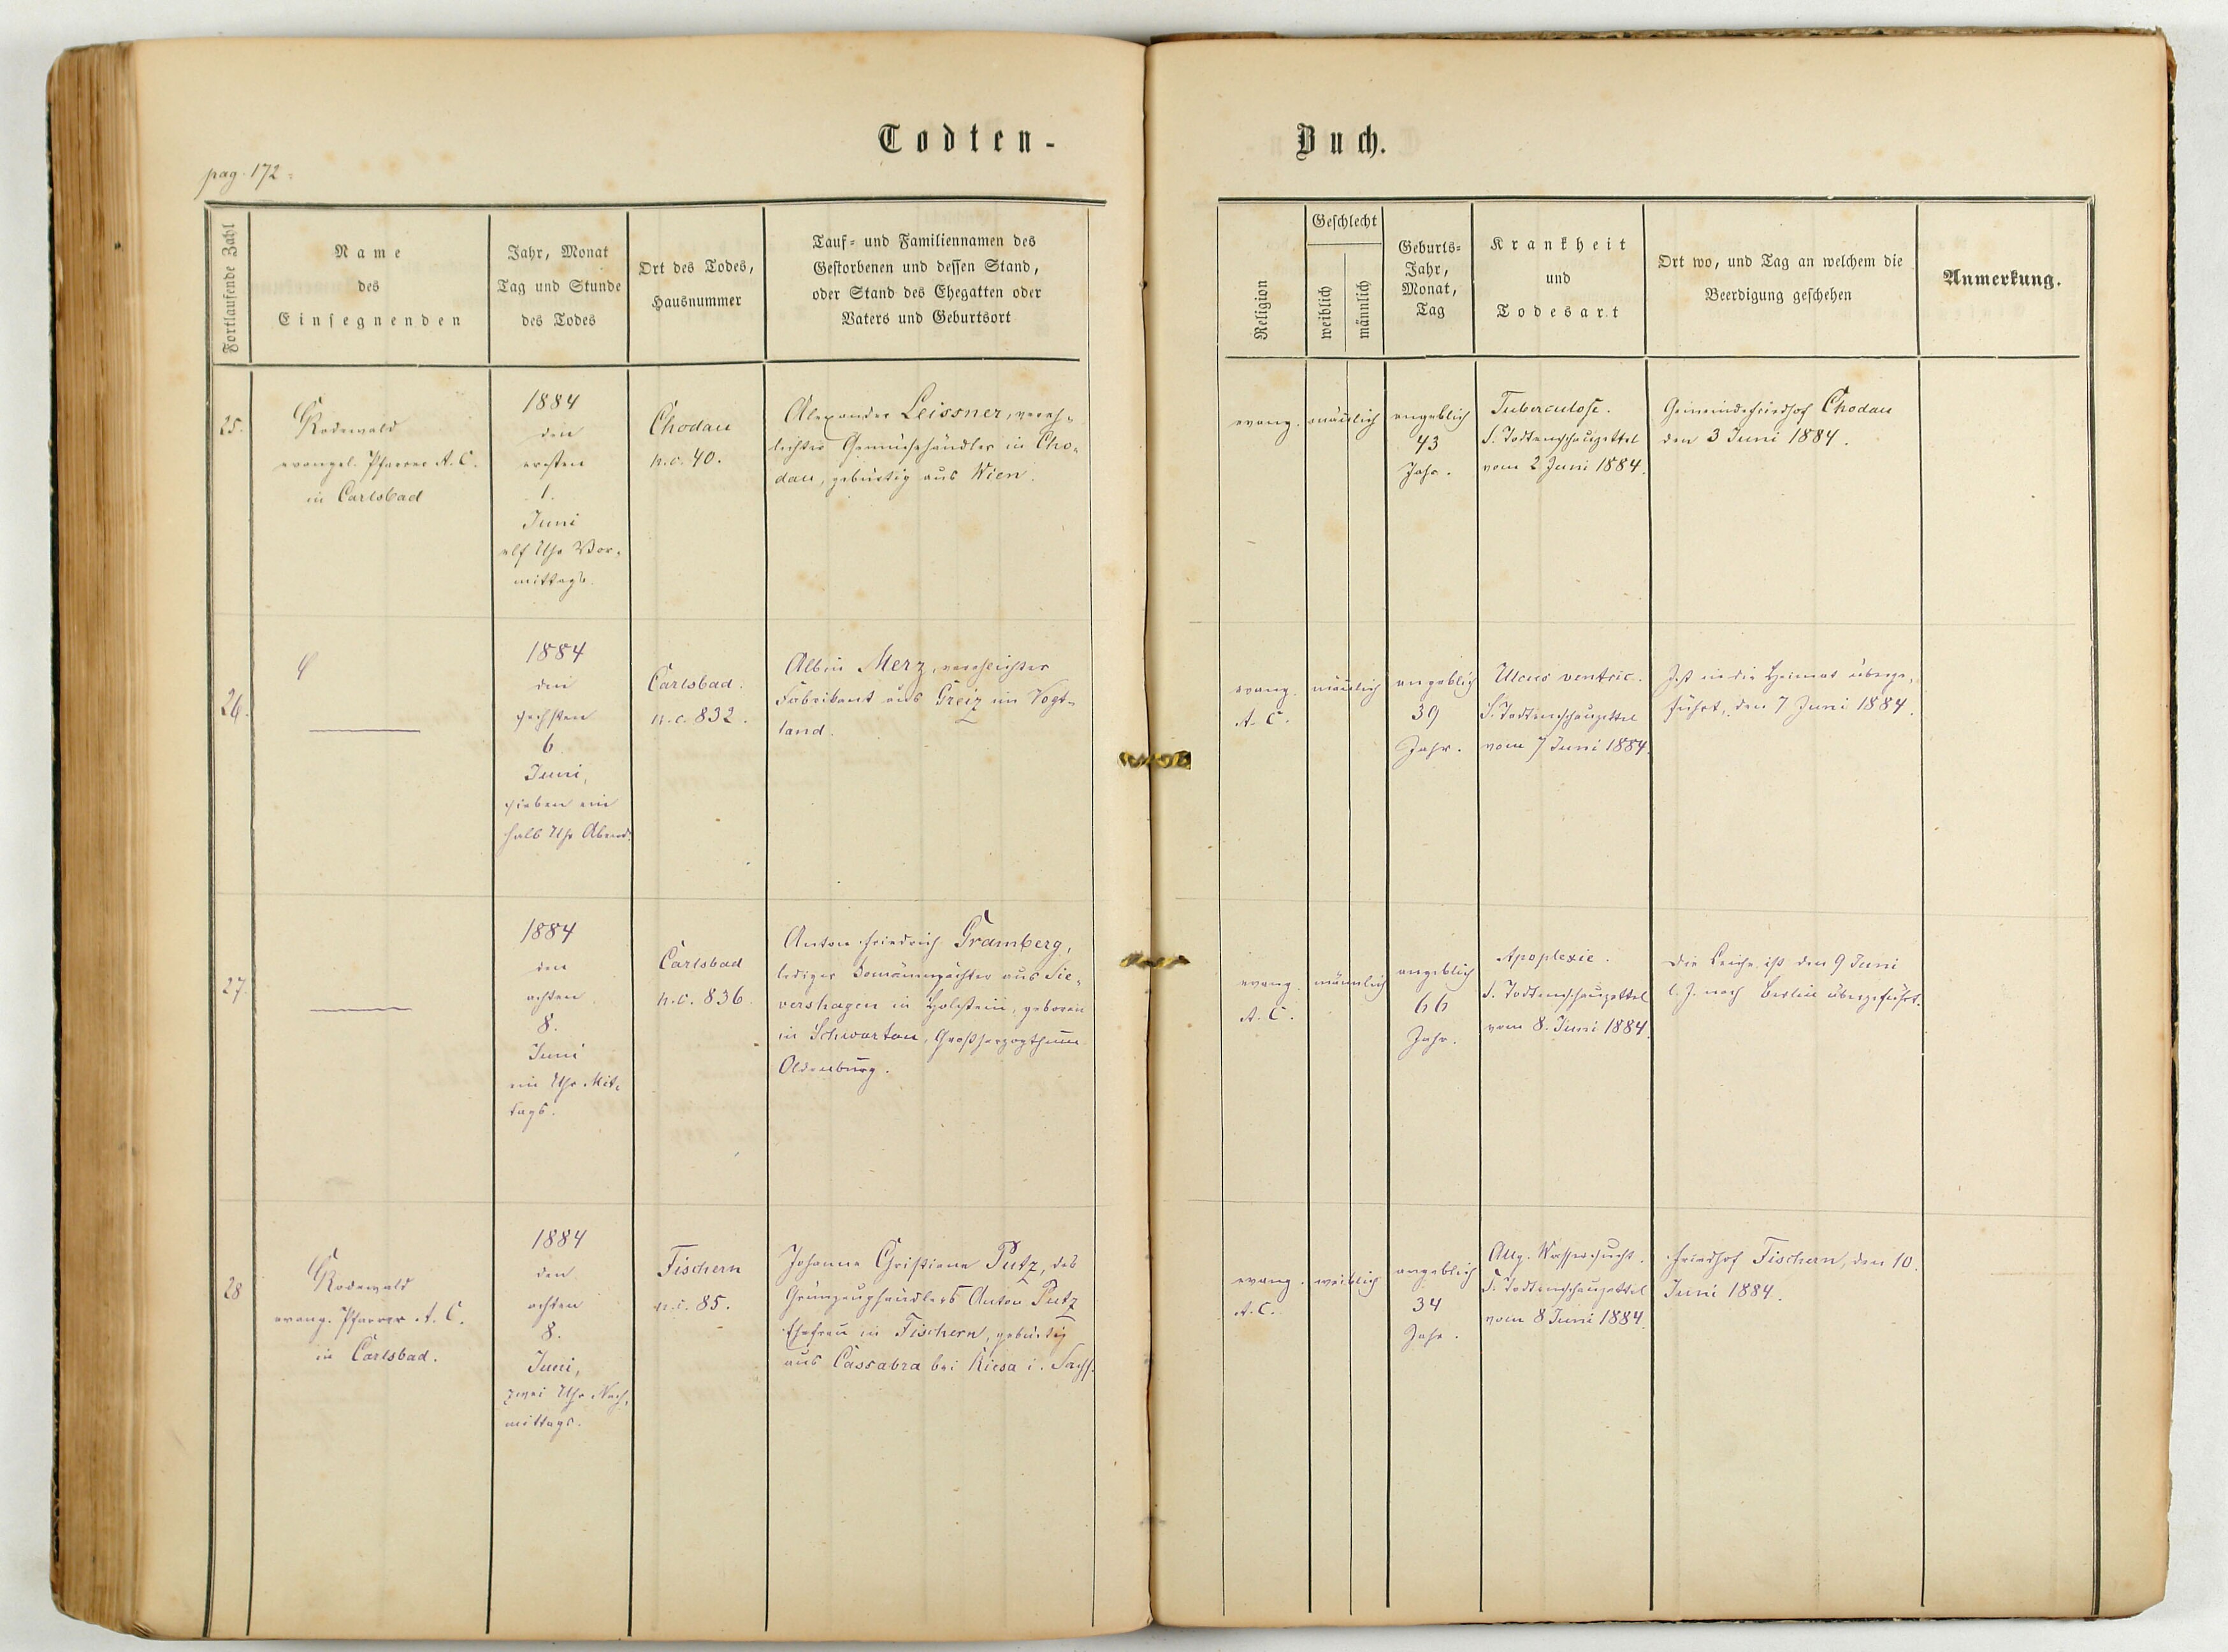 Todten-
Buch.
pag. 172
Fortlaufende Zahl
Name
des
Einsegnenden
Jahr, Monat
Tag und Stunde
des Todes
Ort des Todes,
Hausnummer
Tauf- und Familiennamen des
Gestorbenen und dessen Stand,
oder Stand des Ehegatten oder
Vaters und Geburtsort
Religion
Geschlecht
weiblich
männlich
Geburts-
Jahr,
Monat,
Tag
Krankheit
und
Todesart
Ort wo, und Tag an welchem die
Beerdigung geschehen
Anmerkung.
25.
Rodewald
evangel. Pfarrer A. C.
in Carlsbad
1884
den
ersten
1.
Juni
elf Uhr Vor-
mittags.
Chodau
n.c. 40.
Alexander Leissner, vereh-
lichter Gemüsehändler in Cho-
dau, gebürtig aus Wien.
evang.
männlich
angeblich
43
Jahr.
Tuberculose.
S. Todtenschauzettel
vom 2 Juni 1884.
Gemeindefriedhof Chodau
den 3 Juni 1884.
26.
1884
den
sechsten
6
Juni,
sieben ein
halb Uhr Abends
Carlsbad.
n.c. 832.
Albin Merz, verehlichter
Fabrikant aus Greiz im Vogt-
land.
evang.
A. C.
männlich
angeblich
39
Jahr.
Ulcus ventric.
S. Todtenschauzettel
vom 7 Juni 1884.
Ist in die Heimat überge-
führt, den 7 Juni 1884.
27.
1884
den
achten
8.
Juni
ein Uhr Mit-
tags.
Carlsbad
n.c. 836.
Anton Friedrich Gramberg,
lediger Domänenpächter aus Sie-
vershagen in Holstein, geboren
in Schwartau, Großherzogthum
Oldenburg.
evang.
A. C.
männlich
angeblich
66
Jahr.
Apoplexie.
S. Todtenschauzettel
vom 8. Juni 1884.
Die Leiche ist den 9 Juni
l. J. nach Berlin übergeführt.
28
Rodewald
evang. Pfarrer A. C.
in Carlsbad.
1884
den
achten
8.
Juni,
zwei Uhr Nach-
mittags.
Fischern
n.c. 85.
Johanna Christiana Putz, des
Grünzeughändlers Anton Putz
Ehefrau in Fischern, gebürtig
aus Cassabra bei Riesa i. Sachs.
evang.
A. C.
weiblich
angeblich
34
Jahr.
Allg. Wassersucht.
S. Todtenschauzettel
vom 8 Juni 1884.
Friedhof Fischern, den 10.
Juni 1884.